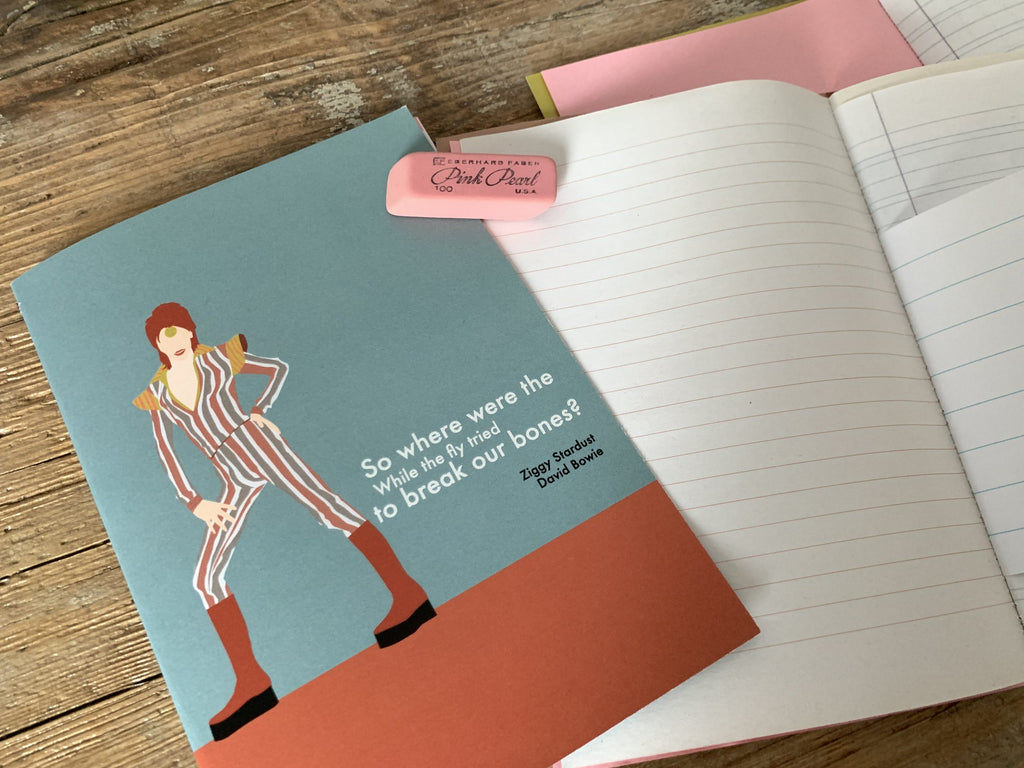 EBERHARD FABER
Pink Pearl
100 U.S.A.
So where were the
While the fly tried
to break our bones?
Ziggy Stardust
David Bowie